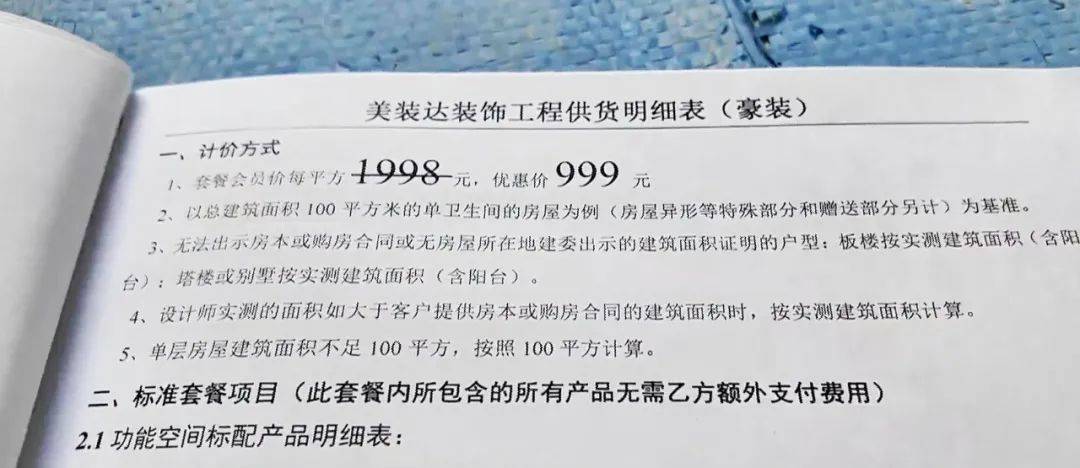 美装达装饰工程供货明细表（豪装）
一、计价方式
1、套餐会员价每平方1998元，优惠价 999 元
2、以总建筑面积 100 平方米的单卫生间的房屋为例（房屋异形等特殊部分和赠送部分另计）为基准。
3、无法出示房本或购房合同或无房屋所在地建委出示的建筑面积证明的户型：板楼按实测建筑面积（含阳
台）；塔楼或别墅按实测建筑面积（含阳台）。
4、设计师实测的面积如大于客户提供房本或购房合同的建筑面积时，按实测建筑面积计算。
5、单层房屋建筑面积不足 100 平方，按照 100 平方计算。
二、标准套餐项目（此套餐内所包含的所有产品无需乙方额外支付费用）
2.1 功能空间标配产品明细表：